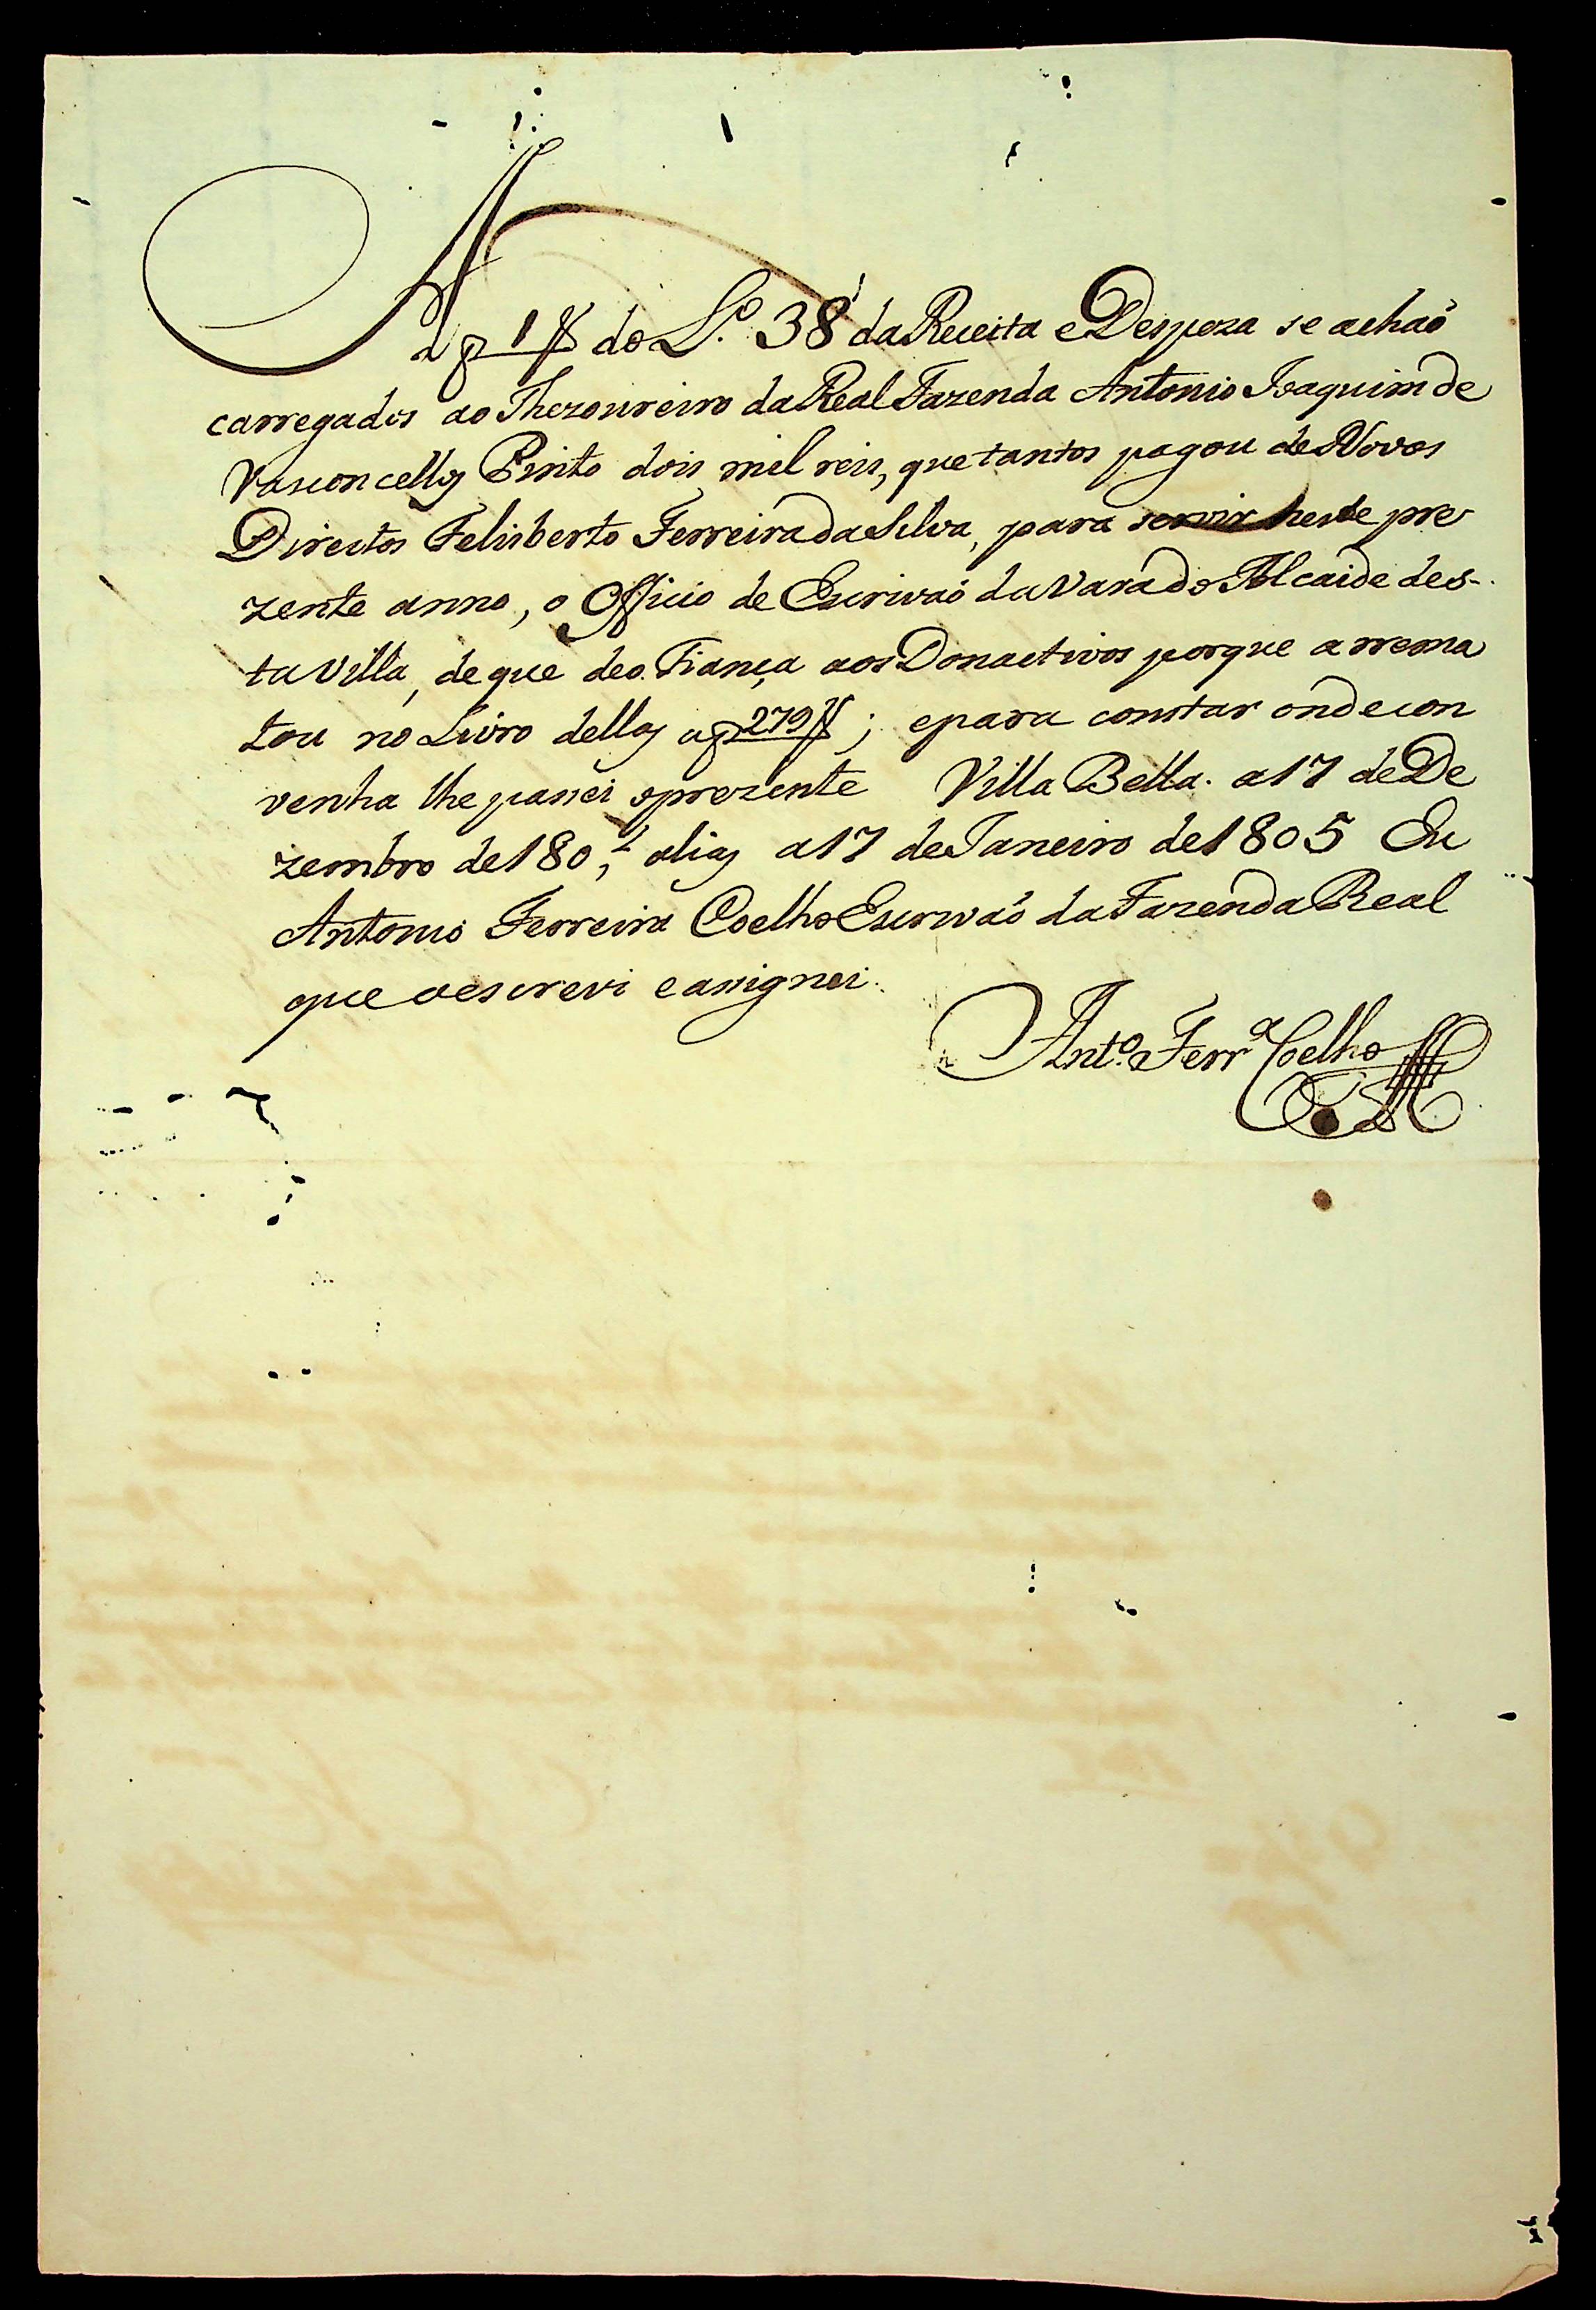 A f 1 f do L.º 38 da Receita e Despeza se achaõ
carregados ao Thezoureiro da Real Fazenda Antonio Joaquim de
Vasconcellos Pinto dois mil reis, que tantos pagou de Novos
Direitos Felisberto Ferreira da Silva, para servir neste pre
zente anno, o Officio de Escrivaõ da Vara do Alcaide des-
ta Villa, de que deo Fiança aos Donactivos porque arrema
tou no Livro dellas a f 279 ; e para constar onde con
venha lhe passei o prezente Villa Bella. a 17 de De
zembro de 180 alias a 17 de Janeiro de 1805 Eu
Antonio Ferreira Coelho Escrivaõ da Fazenda Real
que o escrevi e assignei.
Ant.º Ferr.ª Coelho